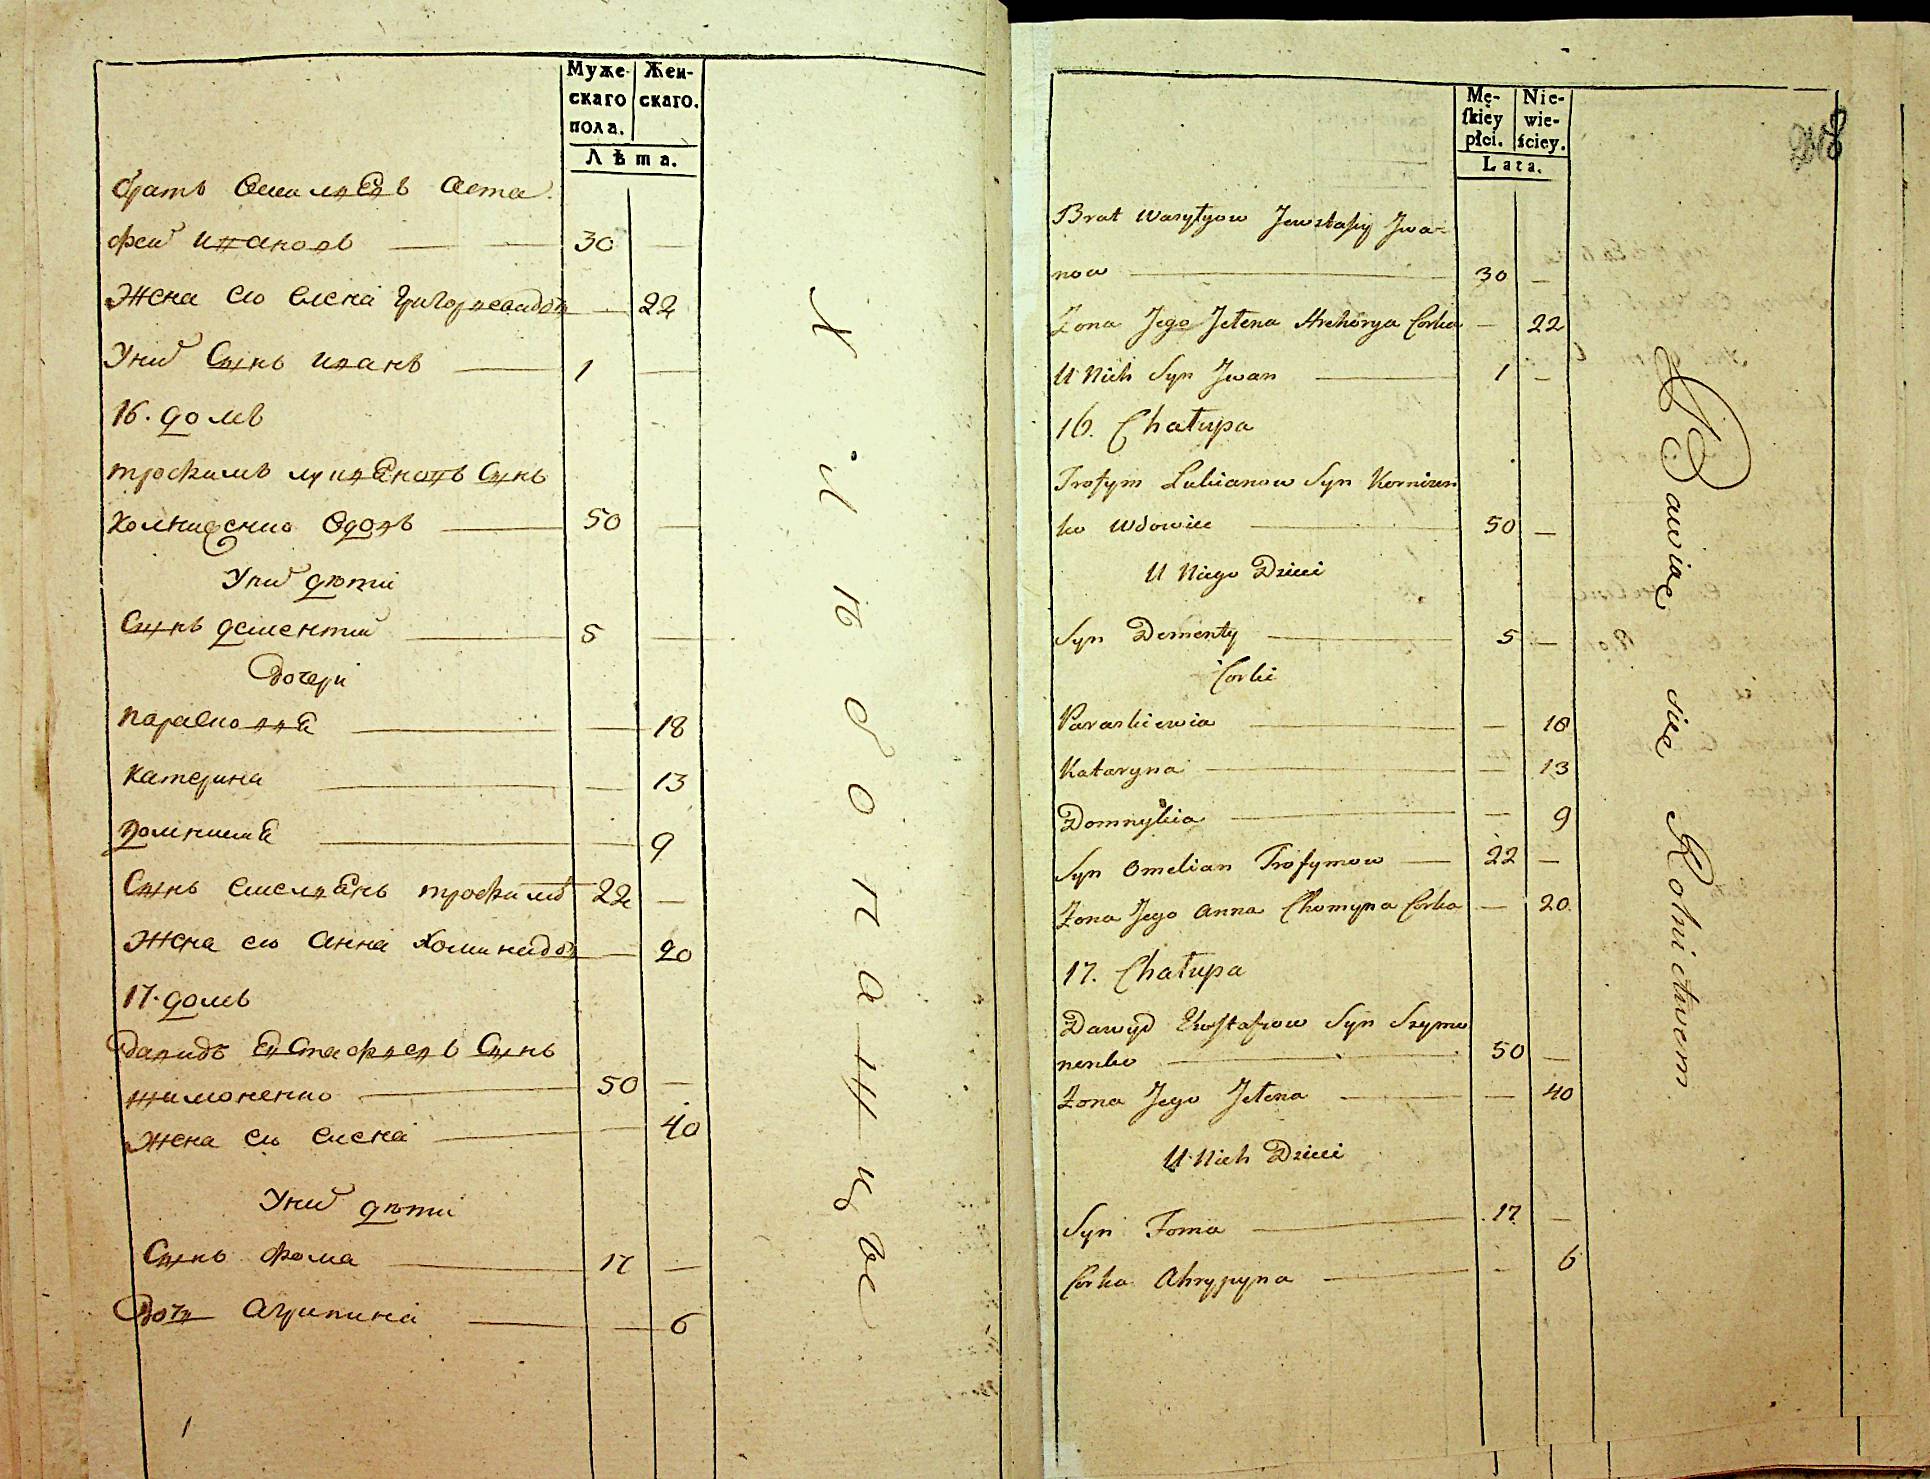 Муже-
скаго
пола.
Жен-
скаго.
Лѣта.
братъ Аста-
фей Ивановъ 30
Жена его Елена Григориева дочь 22
У них Сынъ Иванъ 1
16. домъ
трофимъ Сынъ
вдовъ 50
У них дѣти
Сынъ дементий 5
Дочери
Парасковия 18
Катерина 13
Домникия 9
Сынъ Емелиянъ трофимовъ 22
Жена его Анна Хомина дочь 20
17. домъ
Давидъ Евстафиевъ Сынъ
шимоненко 50
Жена его Елена 40
У них дѣти
Сынъ Фома 17
Дочь Агрипина 6
Хлѣбопашцы
Mę-
skiey
płci.
Nie-
wie-
ściey.
Lata.
248
Brat Wasylyow Jewstafiy Jwa-
now 30 —
Żona Jego Jełena Hrehorya Corka — 22
U Nich Syn Jwan 1 —
16. Chałupa
Trofym Lukianow Syn Kornien
ko Wdowiec 50 —
U Niego Dzieci
Syn Dementy 5 —
Corki
Paraskiewia — 18
Kataryna — 13
Domnykia — 9
Syn Omelian Trofymow 22 —
Żona Jego Anna Chomyna Corka — 20
17. Chałupa
Dawyd Ewstafiow Syn Szymo
nenko 50 —
Żona Jego Jełena — 40
U Nich Dzieci
Syn Foma 17 —
Corka Ahrypyna — 6
Bawiąc się Rolnictwem